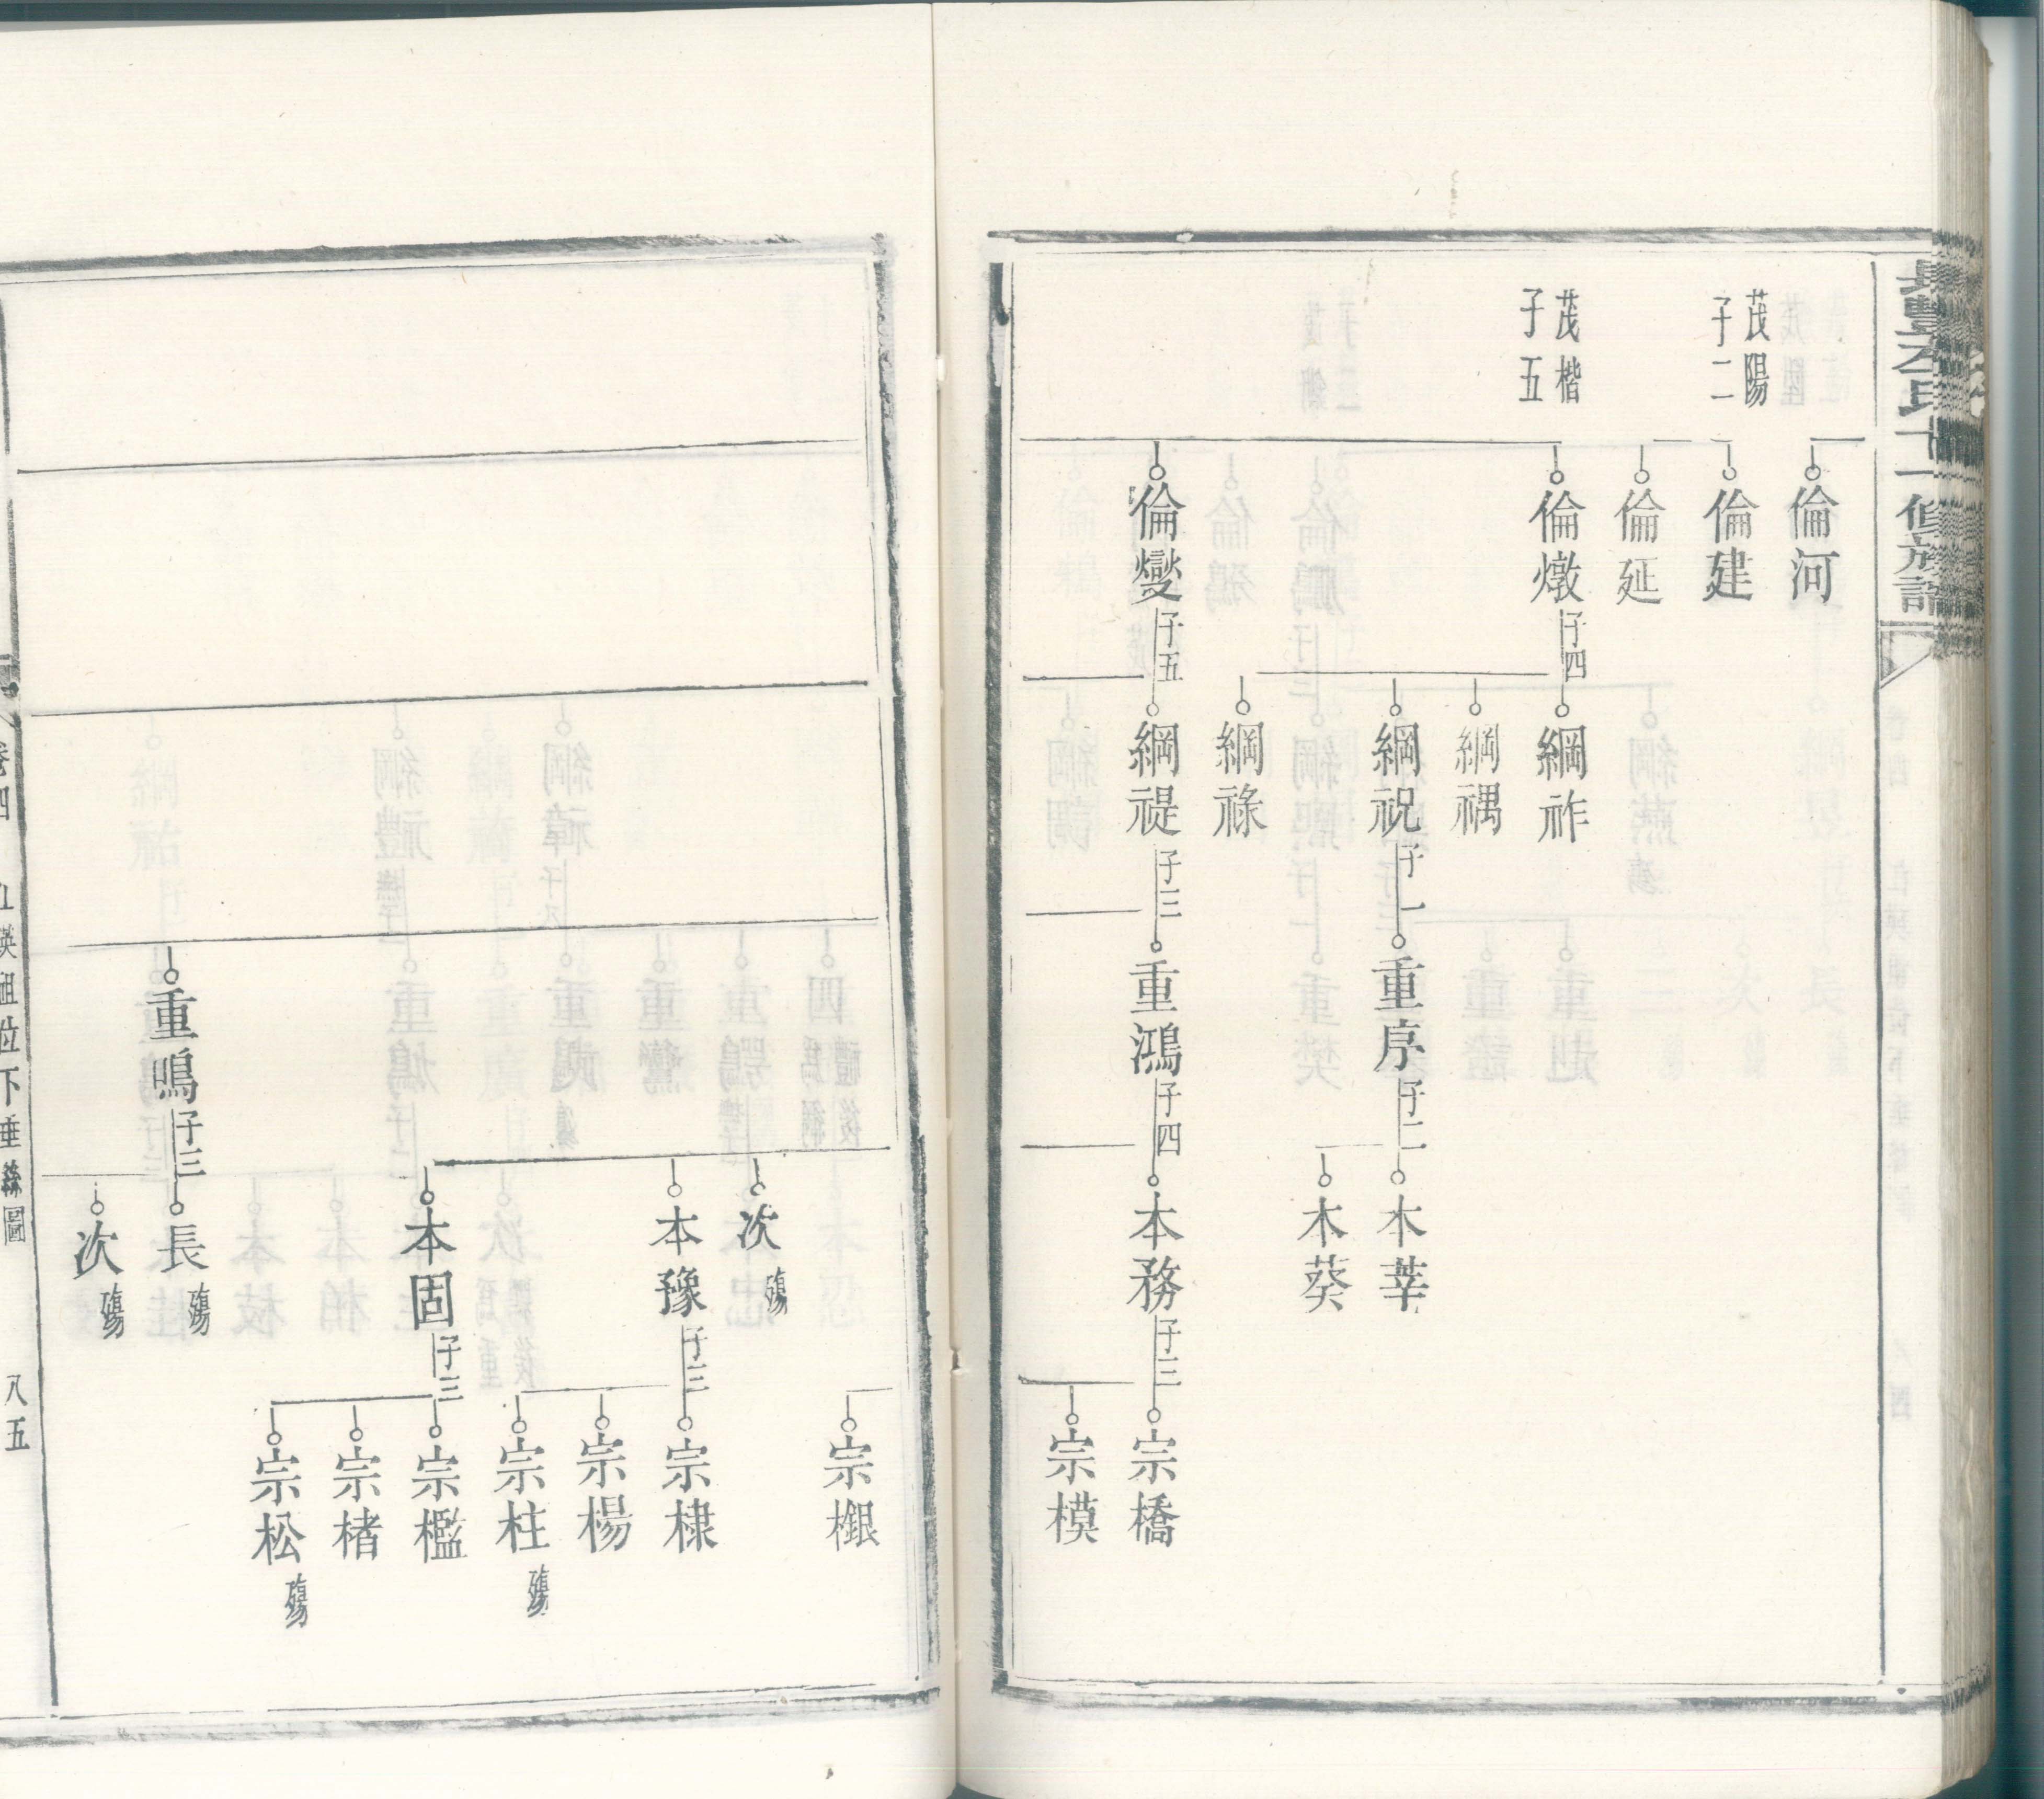 氏
修族譜
茂陽
子二
茂楷
子五
倫河
倫建
倫延
倫燉
子四
倫燮
子五
綱祚
綱禑
綱祝
子一
綱祿
綱禔
子三
重序
子二
重鴻
子四
本莘
本葵
本務
子三
宗橋
宗模
宗檭
次
殤
本豫
子三
宗棣
宗楊
宗柱
殤
本固
子三
宗檻
宗楮
宗松
殤
重鳴
子三
長
殤
次
殤
卷四
祖位下垂絲圖
八五